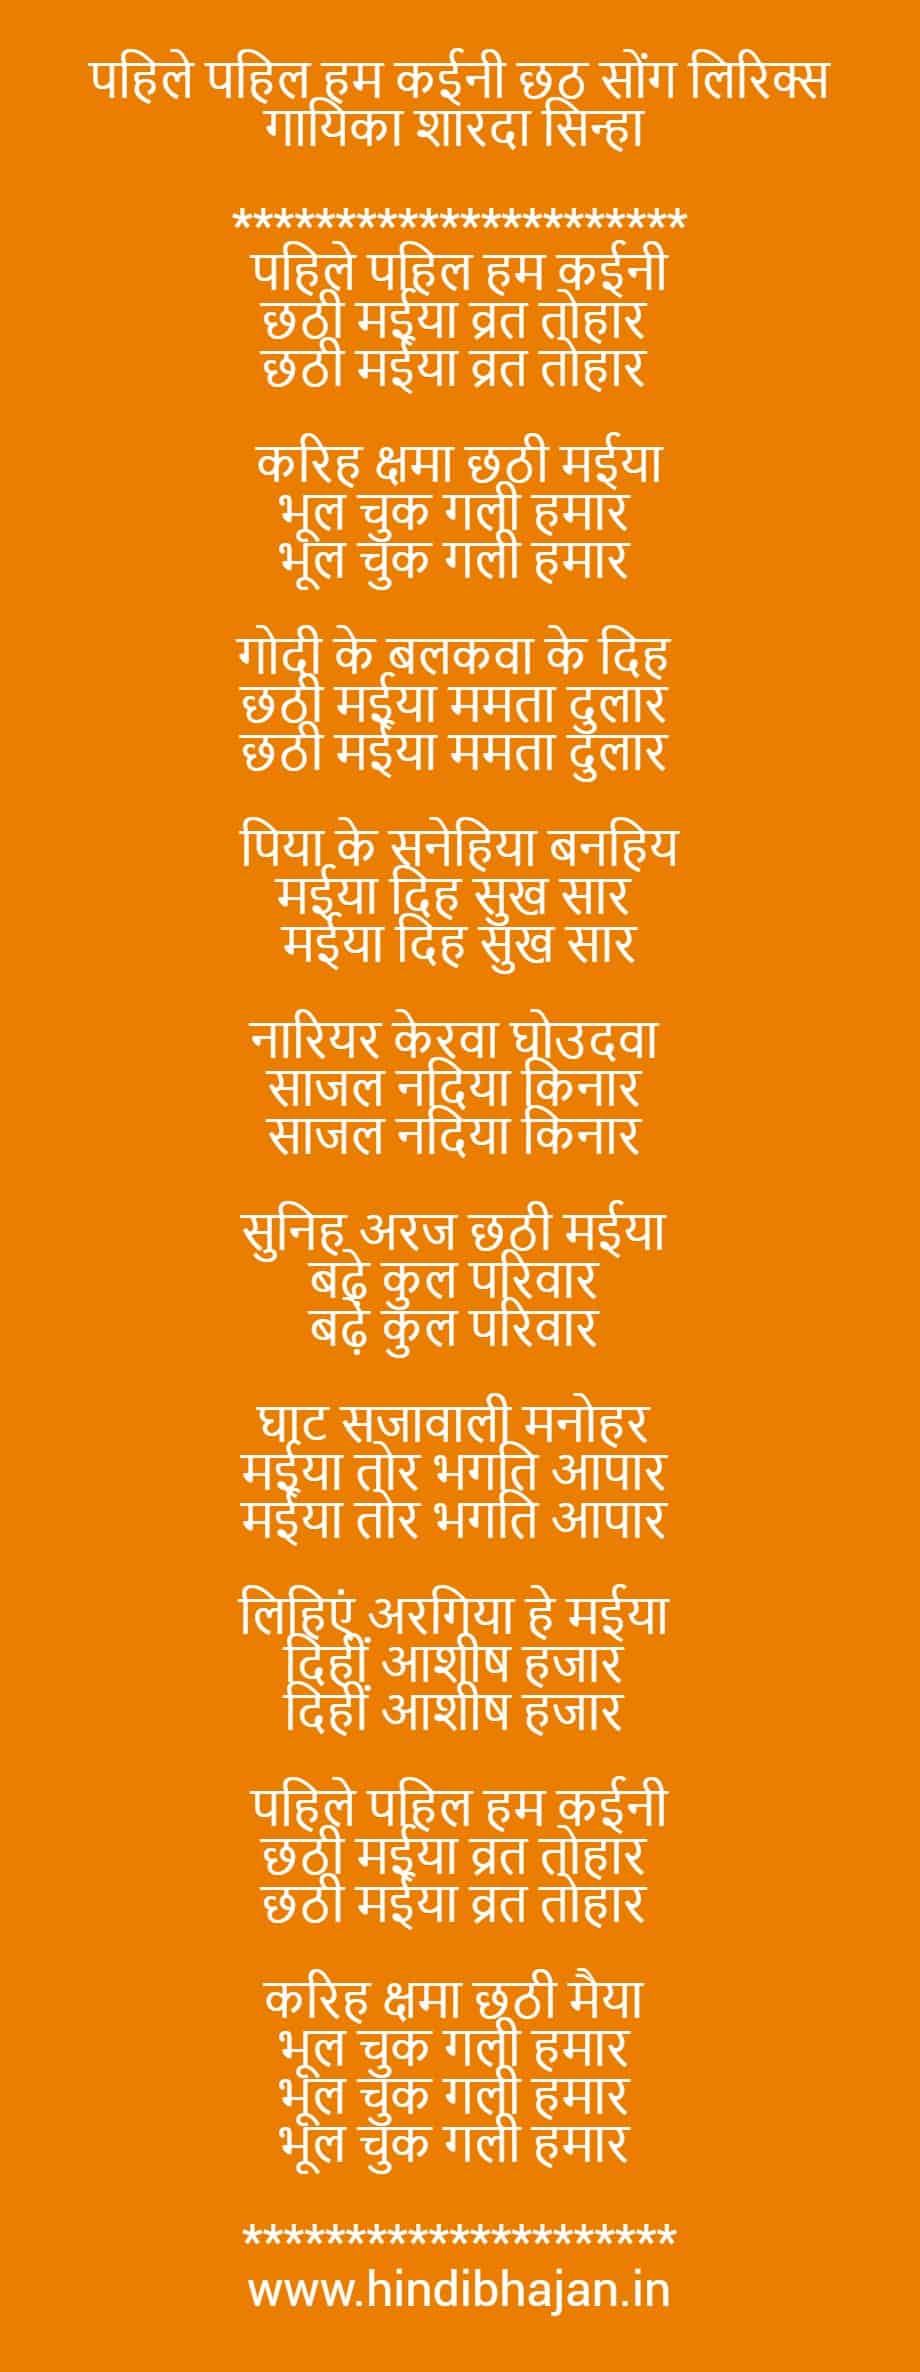 पहिले पहिल हम कईनी छठ सोंग लिरिक्स
गायिका शारदा सिन्हा
**********************
पहिले पहिल हम कईनी
छठी मईया व्रत तोहार
छठी मईया व्रत तोहार
करिह क्षमा छठी मईया
भूल चुक गली हमार
भूल चुक गली हमार
गोदी के बलकवा के दिह
छठी मईया ममता दुलार
छठी मईया ममता दुलार
पिया के सनेहिया बनहिय
मईया दिह सुख सार
मईया दिह सुख सार
नारियर केरवा घोउदवा
साजल नदिया किनार
साजल नदिया किनार
सुनिह अरज छठी मईया
बढ़े कुल परिवार
बढ़े कुल परिवार
घाट सजावाली मनोहर
मईया तोर भगति आपार
मईया तोर भगति आपार
लिहिएं अरगिया हे मईया
दिहीं आशीष हजार
दिहीं आशीष हजार
पहिले पहिल हम कईनी
छठी मईया व्रत तोहार
छठी मईया व्रत तोहार
करिह क्षमा छठी मैया
भूल चुक गली हमार
भूल चुक गली हमार
भूल चुक गली हमार
*********************
www.hindibhajan.in